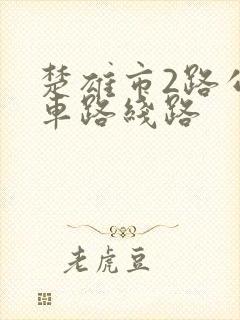 楚雄市2路公
車路綫路
老虎豆